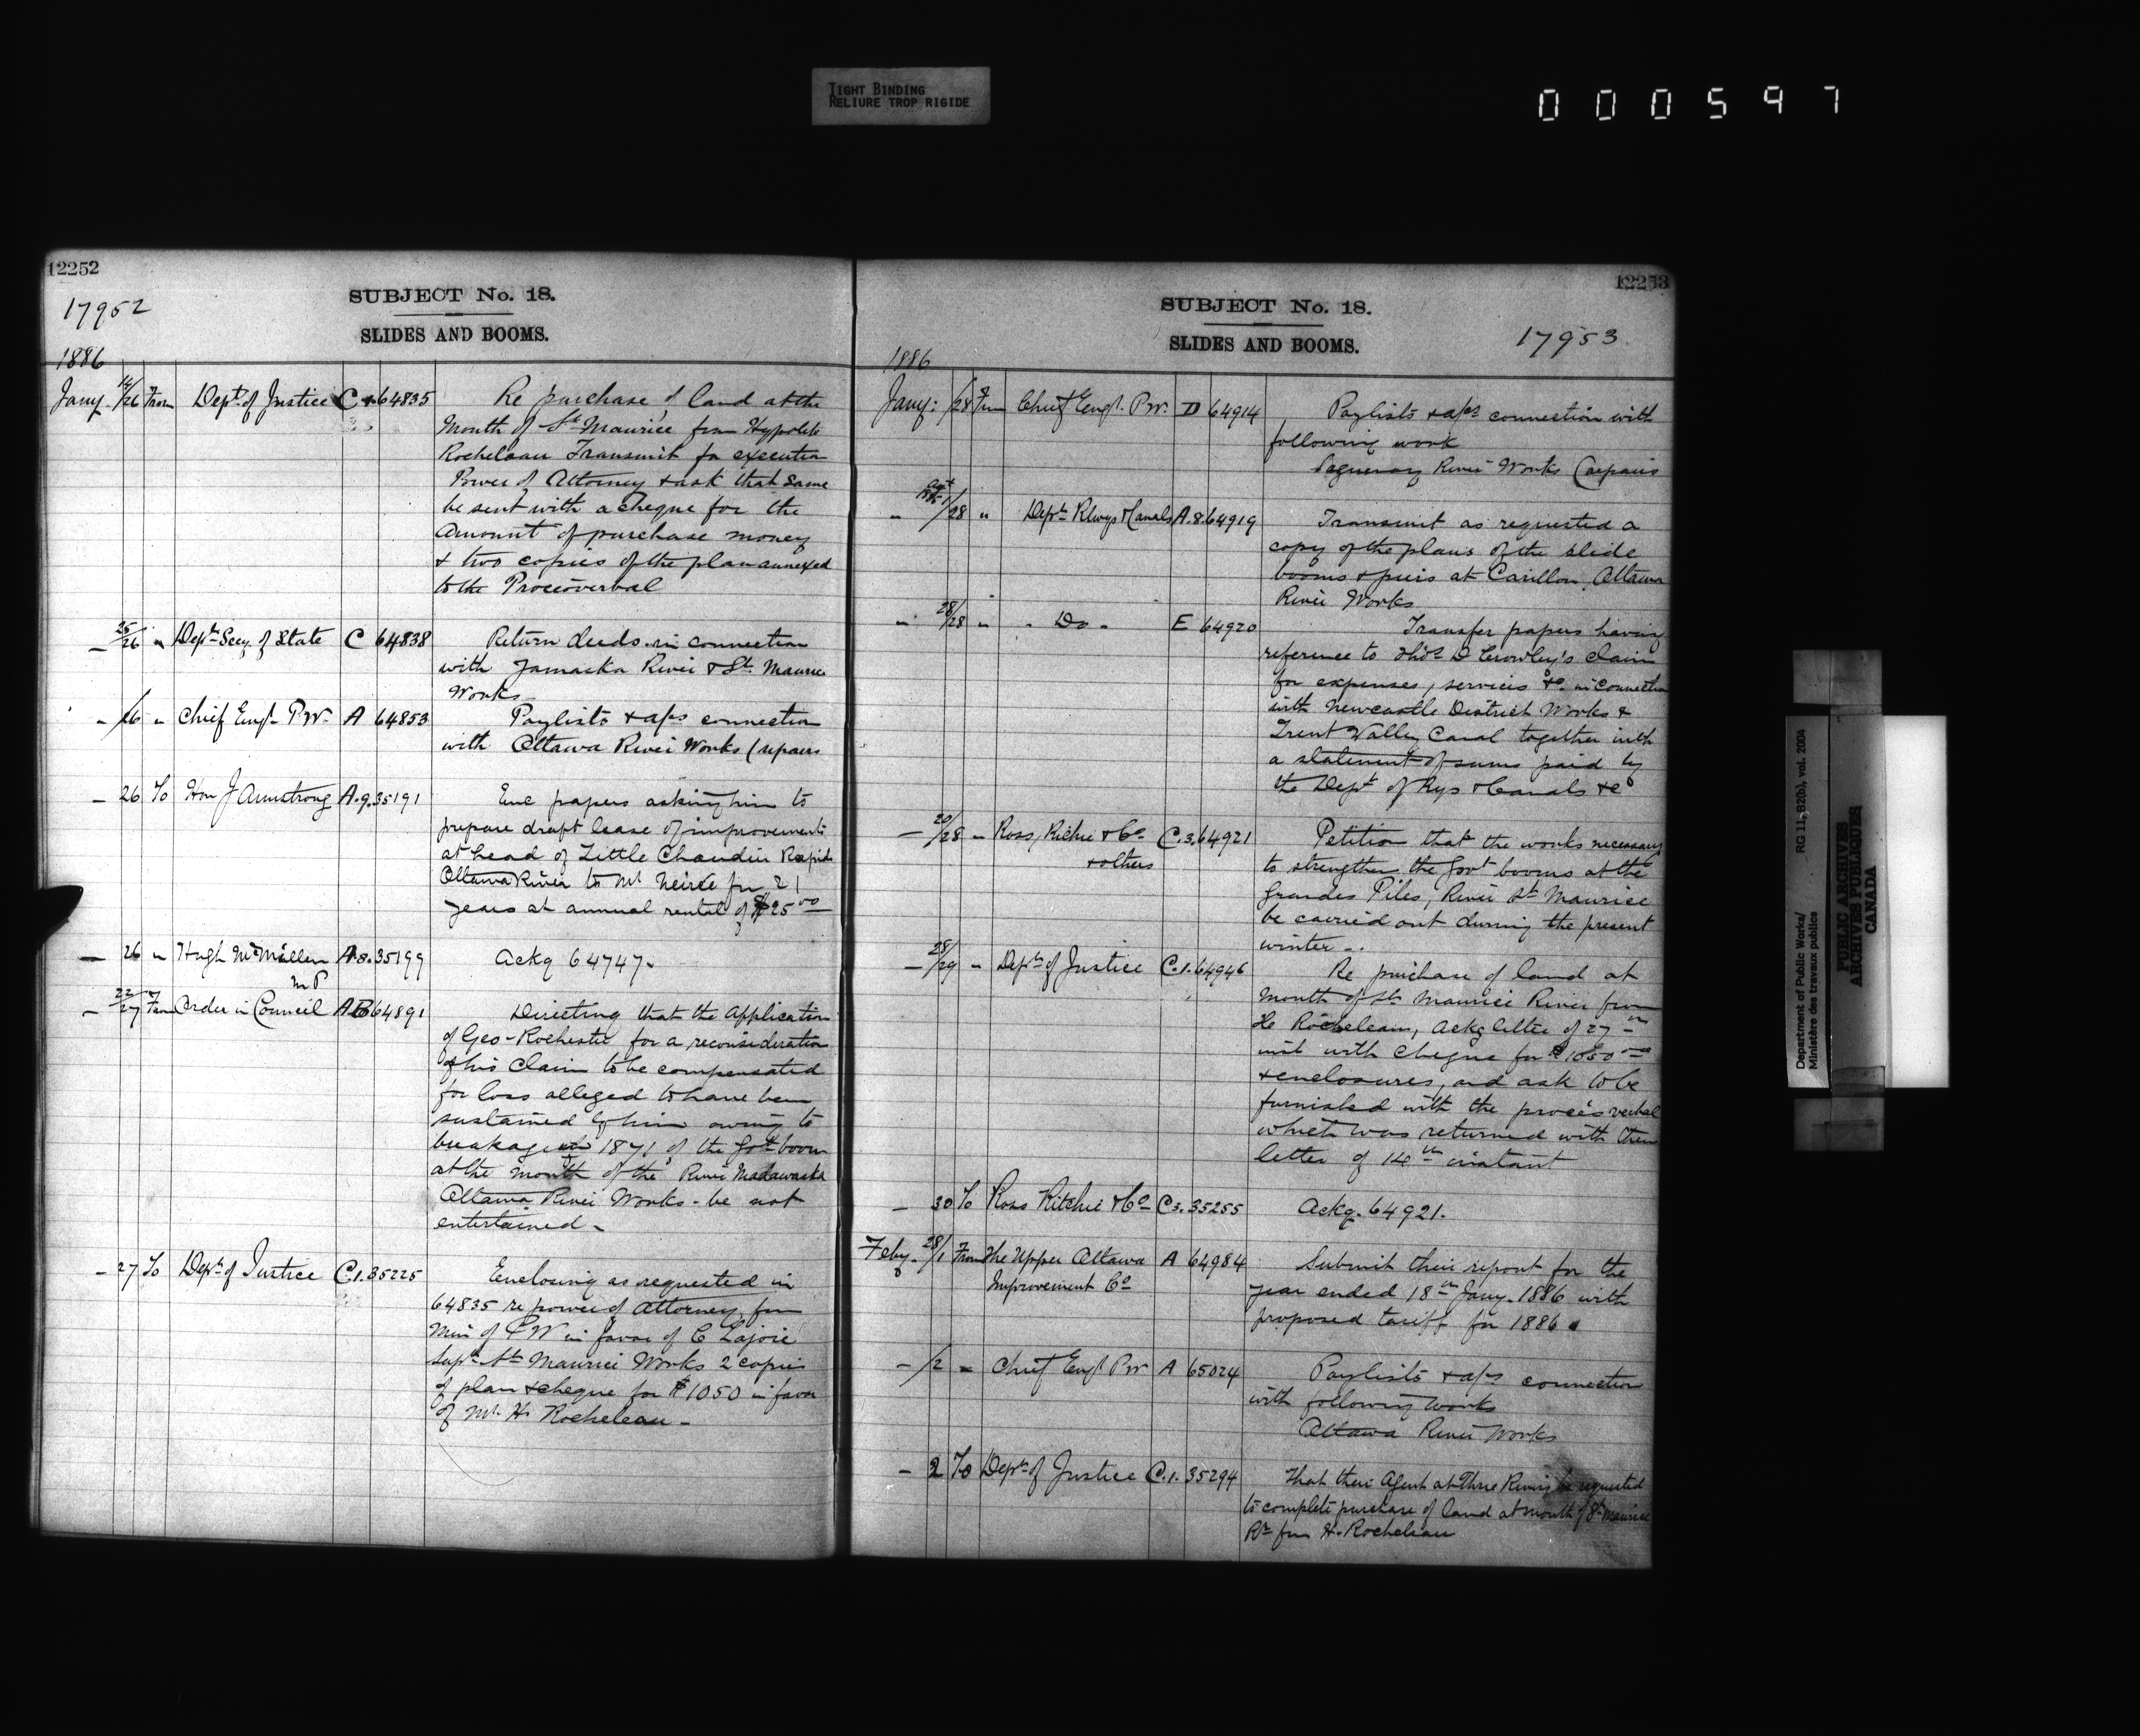 TIGHT BINDING
RELIURE TROP RIGIDE
000597
12252
17952
SUBJECT No. 18.
SLIDES AND BOOMS.
1886
Jany 14/26 From Dept of Justice C 1 64835 Re purchase of land at the
Mouth of St Maurice from Hypolite
Rocheleau Transmit for execution
Power of Attorney & ask that same
be sent with a cheque for the
Amount of purchase money
& two copies of the plan annexed
to the Procesverbal
" 25/26 " Dept Secy of State C 64838 Return deeds in connection
with Jamaska River & St. Maurice
Works
" /26 " Chief Engr P.W. A 64853 Paylists & a/cs connection
with Ottawa River Works (repairs
– 26 To Hon J Armstrong A.9. 35191 Enc papers asking him to
prepare draft lease of improvements
at head of Little Chaudier Rapids
Ottawa River to Mr for 21
years at annual rental of $25 00
– 26 " Hugh McMillen A.8. 35199 Ackg 64747.
M P
– 22/27 From Order in Council A.B 64891 Directing that the application
of Geo Rochester for a reconsideration
of his claim to be compensated
for loss alleged to have been
sustained by him owing to
breakage in 1871 of the Govt boom
at the mouth of the River Madawaska
Ottawa River Works - be not
entertained –
– 27 To Dept of Justice C.1. 35225 Enclosing as requested in
64835 re power of Attorney from
Min of P W in favor of C Lajoie
Supt St Maurice Works 2 copies
of plan & cheque for $1050 in favor
of Mr H Rocheleau –
12253
SUBJECT No. 18.
SLIDES AND BOOMS.
17953
1886
Jany: /28 From Chief Engr. P.W. D 64914 Paylists & a/cs connection with
following work
Saguenay River Works (repairs
" Augt 1885 1/28 " Dept Rlwys & Canals A.8. 64919 Transmit as requested a
copy of the plans of the slide
booms & piers at Carillon, Ottawa
River Works
" 28/28 " " Do " E 64920 Transfer papers having
reference to Thos D Crowley's claim
for expenses, services &c. in connection
with Newcastle District Works &
Trent Valley Canal together with
a statement of sums paid by
the Dept of Rys & Canals &c
– 20/28 " Ross, Richie & Co C.3. 64921 Petition that the works necessary
& others to strengthen the Govt booms at the
Grandes Piles, River St Maurice
be carried out during the present
winter –.
– 28/29 " Dept of Justice C.1. 64946 Re purchase of land at
Mouth of St Maurice River from
He Rocheleau, Ackg letter of 27th
inst with Cheque for $1050
& enclosures, and ask to be
furnished with the procès verbal
which was returned with their
letter of 14th instant
– 30 To Ross Ritchie & Co C3. 35255 Ackg. 64921.
Feby. 28/1 From The Upper Ottawa A 64984 Submit their report for the
Improvement Co year ended 18th Jany. 1886 with
proposed tariff for 1886.
– /2 " Chief Engr P.W. A 65024 Paylists & a/cs connection
with following works
Ottawa River Works
– 2 To Dept of Justice C.1. 35294 That their Agent at Three Rivers be requested
to complete purchase of land at mouth of St Maurice
Rr from H. Rocheleau
Department of Public Works/
Ministère des travaux publics
RG 11, B2(b), vol. 2004
PUBLIC ARCHIVES
ARCHIVES PUBLIQUES
CANADA